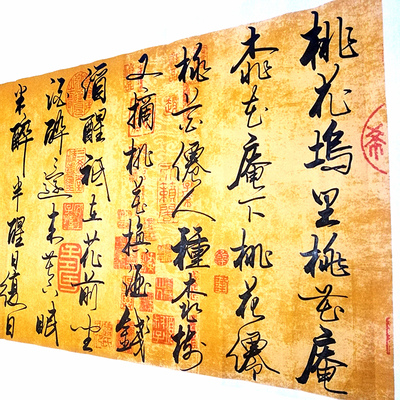 桃花塢里桃花庵
桃花庵下桃花僊
桃花僊人種桃樹
又摘桃花換酒錢
酒醒祗在花前坐
酒醉還来花下眠
半醉半醒日復日